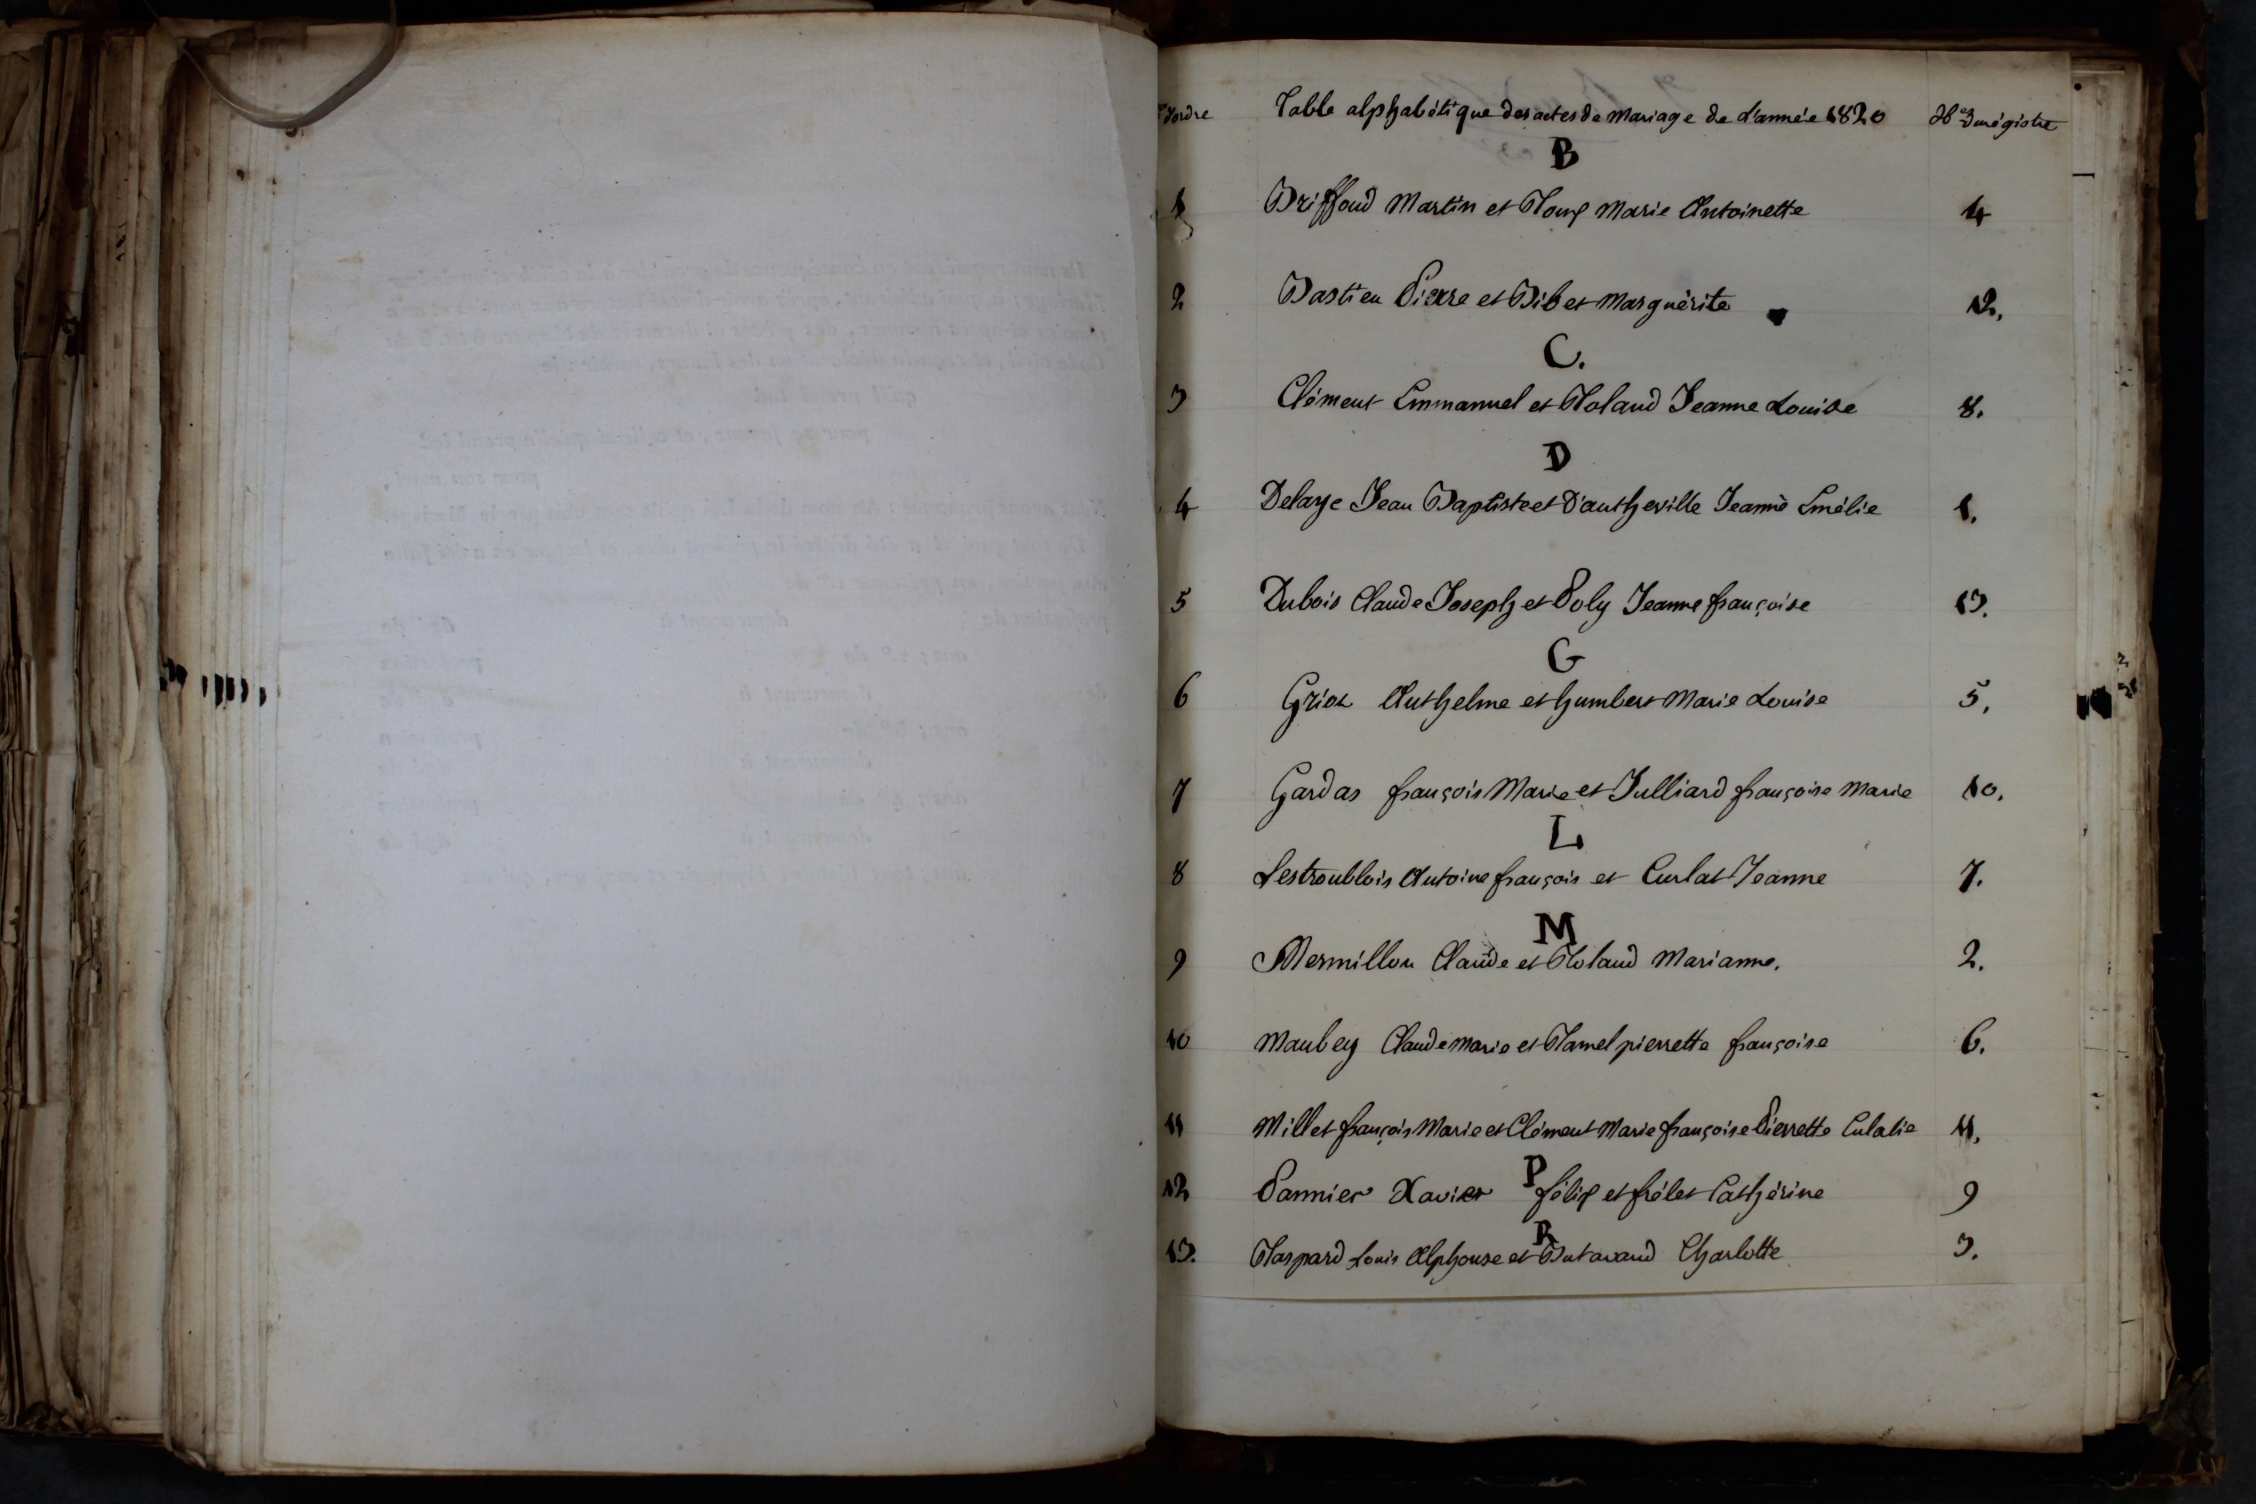 d'ordre Table alphabétique des actes de Mariage de l'année 1820 Nos du régistre
B
1 Briffoud Martin et Roux Marie Antoinette 4
2 Bastien Pierre et Bibet Marguérite 12.
C.
3 Clément Emmanuel et Roland Jeanne Louise 8.
D
4 Delaye Jean Baptiste et D'antheville Jeanne Emélie 1.
5 Dubois Claude Joseph et Poly Jeanne françoise 13.
G
6 Grioz Anthelme et humbert Marie Louise 5.
7 Gardas françois Marie et Julliard françoise Marie 10.
L
8 Lestroublois Antoine françois et Curlat Jeanne 7.
M
9 Mermillon Claude et Roland Marianne. 2.
10 Maubey Claude Marie et Ramel pierrette françoise 6.
11 Millet françois Marie et Clément Marie françoise Pierrette Eulalie 11.
P
12 Pannier Xavier félix et frélet Cathérine 9
R
13. Raspard Louis Alphonse et Butavand Charlotte 3.